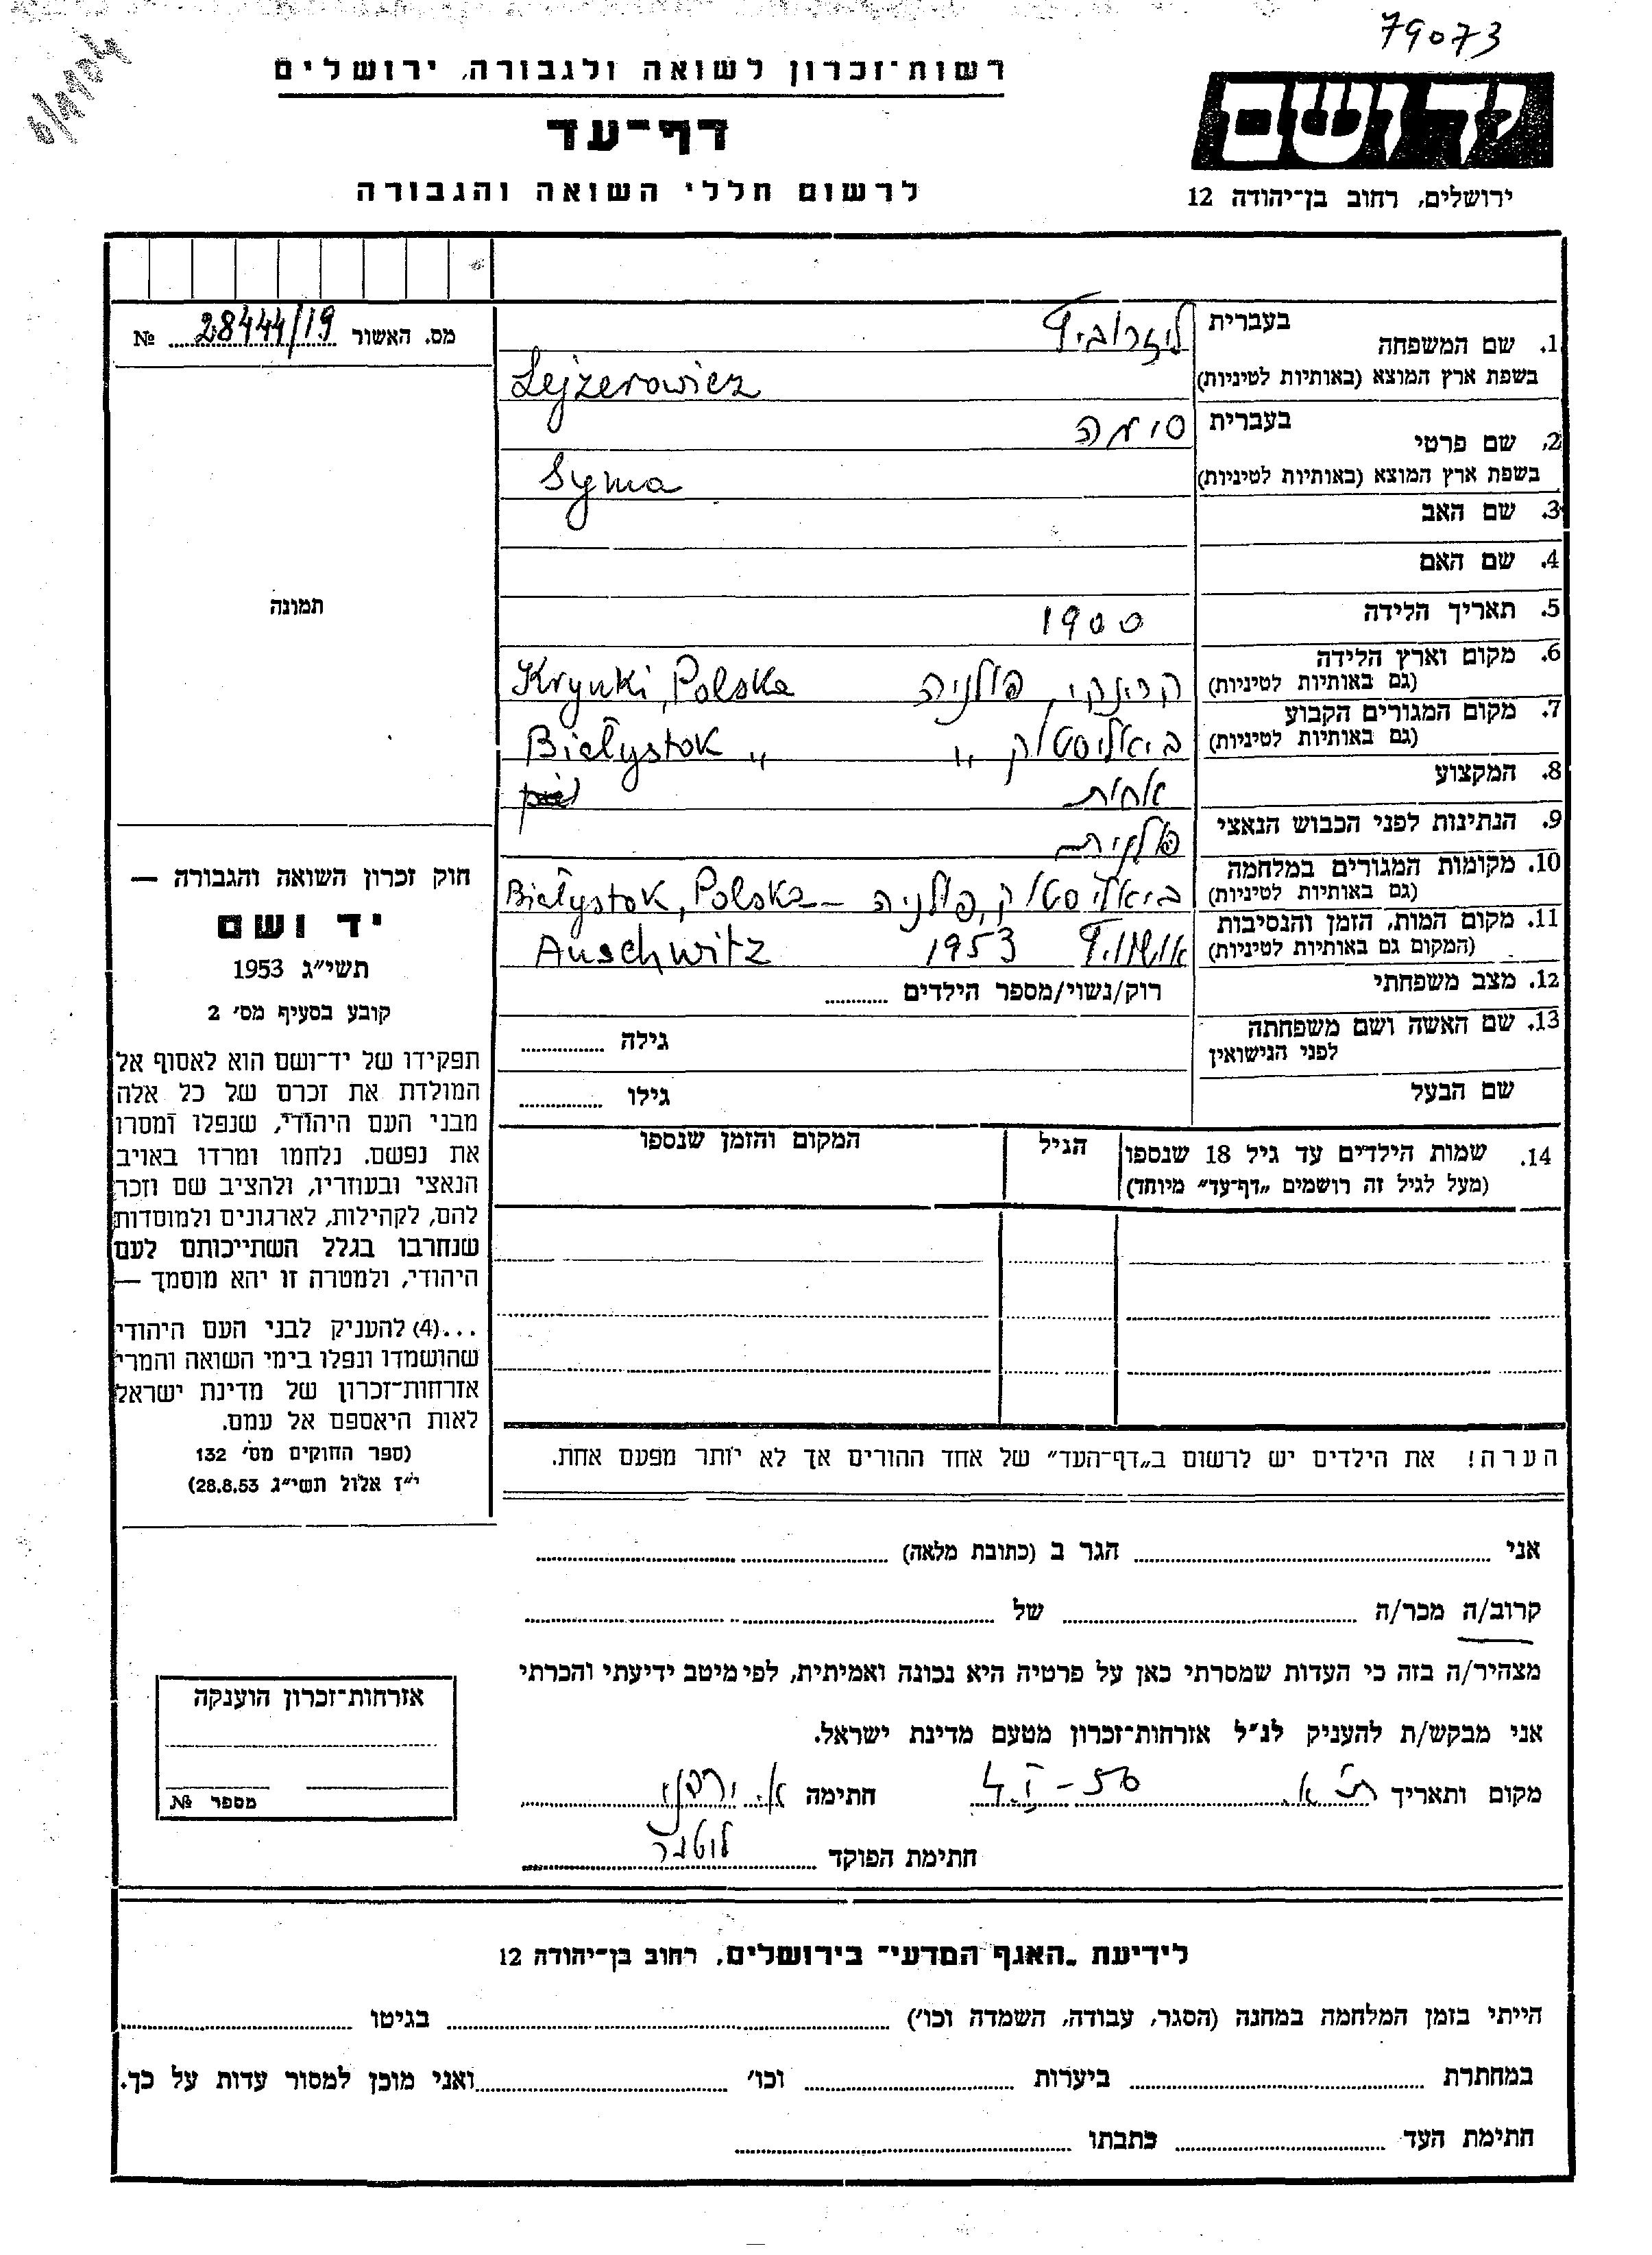 79073
רשות־זכרון לשואה ולגבורה, ירושלים
דף־עד
לרשום חללי השואה והגבורה
יד ושם
ירושלים, רחוב בן־יהודה 12
מס. האשור 28444/19 №
תמונה
חוק זכרון השואה והגבורה —
יד ושם
תשי״ג 1953
קובע בסעיף מס׳ 2
תפקידו של יד־ושם הוא לאסוף אל
המולדת את זכרם של כל אלה
מבני העם היהודי, שנפלו ומסרו
את נפשם, נלחמו ומרדו באויב
הנאצי ובעוזריו, ולהציב שם וזכר
להם, לקהילות, לארגונים ולמוסדות
שנחרבו בגלל השתייכותם לעם
היהודי, ולמטרה זו יהא מוסמך —
...(4) להעניק לבני העם היהודי
שהושמדו ונפלו בימי השואה והמרי
אזרחות־זכרון של מדינת ישראל
לאות היאספם אל עמם.
(ספר החוקים מס׳ 132
י״ז אלול תשי״ג 28.8.53)
1. שם המשפחה בעברית ליזרוביץ
בשפת ארץ המוצא (באותיות לטיניות) Lejzerowicz
2. שם פרטי בעברית סימה
בשפת ארץ המוצא (באותיות לטיניות) Syma
3. שם האב
4. שם האם
5. תאריך הלידה 1900
6. מקום וארץ הלידה קרינקי, פולניה Krynki, Polska
(גם באותיות לטיניות)
7. מקום המגורים הקבוע ביאליסטוק " Białystok "
(גם באותיות לטיניות)
8. המקצוע אחות
9. הנתינות לפני הכבוש הנאצי פולנית
10. מקומות המגורים במלחמה ביאליסטוק, פולניה – Białystok, Polska
(גם באותיות לטיניות)
11. מקום המות, הזמן והנסיבות אושוויץ 1953 Auschwitz
(המקום גם באותיות לטיניות)
12. מצב משפחתי רוק/נשוי/מספר הילדים
13. שם האשה ושם משפחתה גילה
לפני הנישואין
שם הבעל גילו
14. שמות הילדים עד גיל 18 שנספו הגיל המקום והזמן שנספו
(מעל לגיל זה רושמים „דף־עד״ מיוחד)
הערה! את הילדים יש לרשום ב„דף־העד״ של אחד ההורים אך לא יותר מפעם אחת.
אני הגר ב (כתובת מלאה)
קרוב/ה מכר/ה של
מצהיר/ה בזה כי העדות שמסרתי כאן על פרטיה היא נכונה ואמיתית, לפי מיטב ידיעתי והכרתי
אני מבקש/ת להעניק לנ״ל אזרחות־זכרון מטעם מדינת ישראל.
מקום ותאריך ת״א חתימה
חתימת הפוקד
אזרחות־זכרון הוענקה
מספר №
לידיעת „האגף המדעי״ בירושלים, רחוב בן־יהודה 12
הייתי בזמן המלחמה במחנה (הסגר, עבודה, השמדה וכו׳) בגיטו
במחתרת ביערות וכו׳ ואני מוכן למסור עדות על כך.
חתימת העד כתבתו